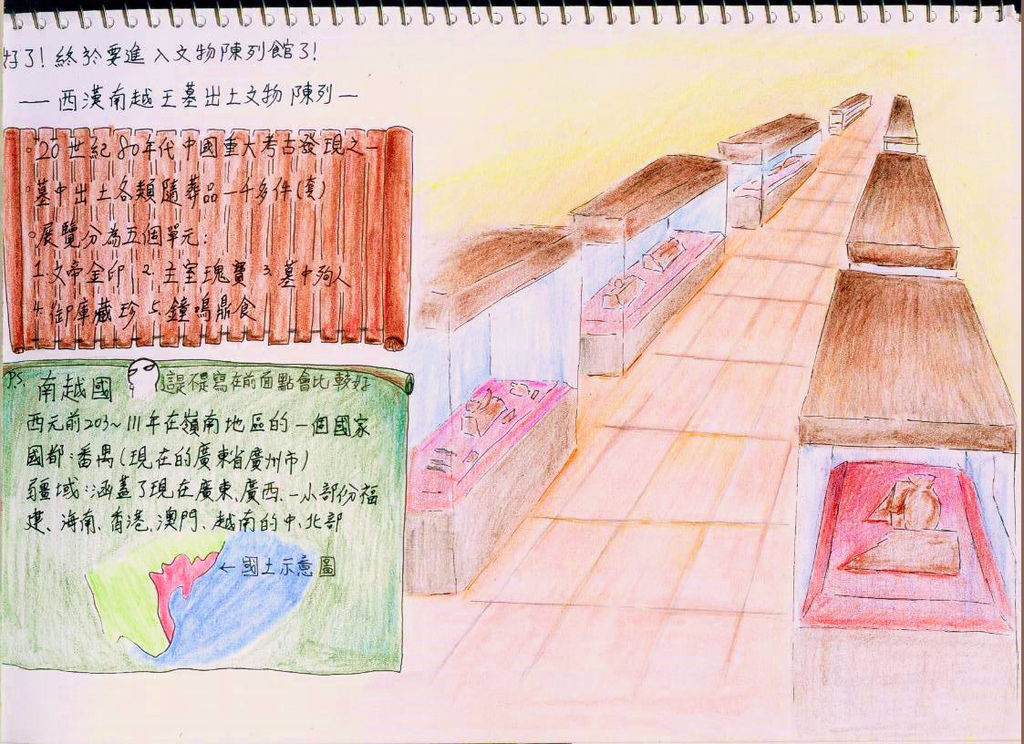 好了!終於要進入文物陳列館了!
—西漢南越王墓出土文物陳列—
。20世紀80年代中國重大考古發現之一
。墓中出土各類隨葬品一千多件(套)
。展覽分為五個單元:
1.文帝金印 2.主室瑰寶 3.墓中殉人
4.御庫藏珍 5.鐘鳴鼎食
PS. 南越國 誤 寫在前面點會比較好
西元前203~111年在嶺南地區的一個國家
國都:番禺(現在的廣東省廣州市)
疆域:涵蓋了現在廣東、廣西、一小部份福
建、海南、香港、澳門、越南的中、北部
←國土示意圖